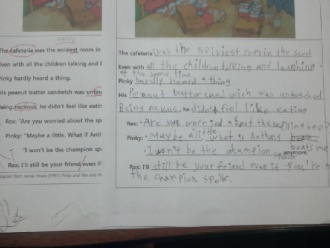 The cafeteria was the noisiest room in
Even with all the children talking and l
Pinky hardly heard a thing.
His peanut butter sandwich was untou
Being nervous, he didn't feel like eatin
Rex: "Are you worried about the sp
Pinky: "Maybe a little. What if Anth
"I won't be the champion spe
Rex: I'll still be your friend, even if
The cafeteria was the noisiest room in the
Even with all the children talking and laughing
at the same time
Pinky hardly heard a thing
His Peanut butter
Being nervous, he didn't feel like eating
Rex: Are you worried about the spelling bee?
Pinky: Maybe a little what if Anthony
beats me
I won't be the champion speller anymore.
Rex: I'll still be your friend even if You're not
the champion speller.